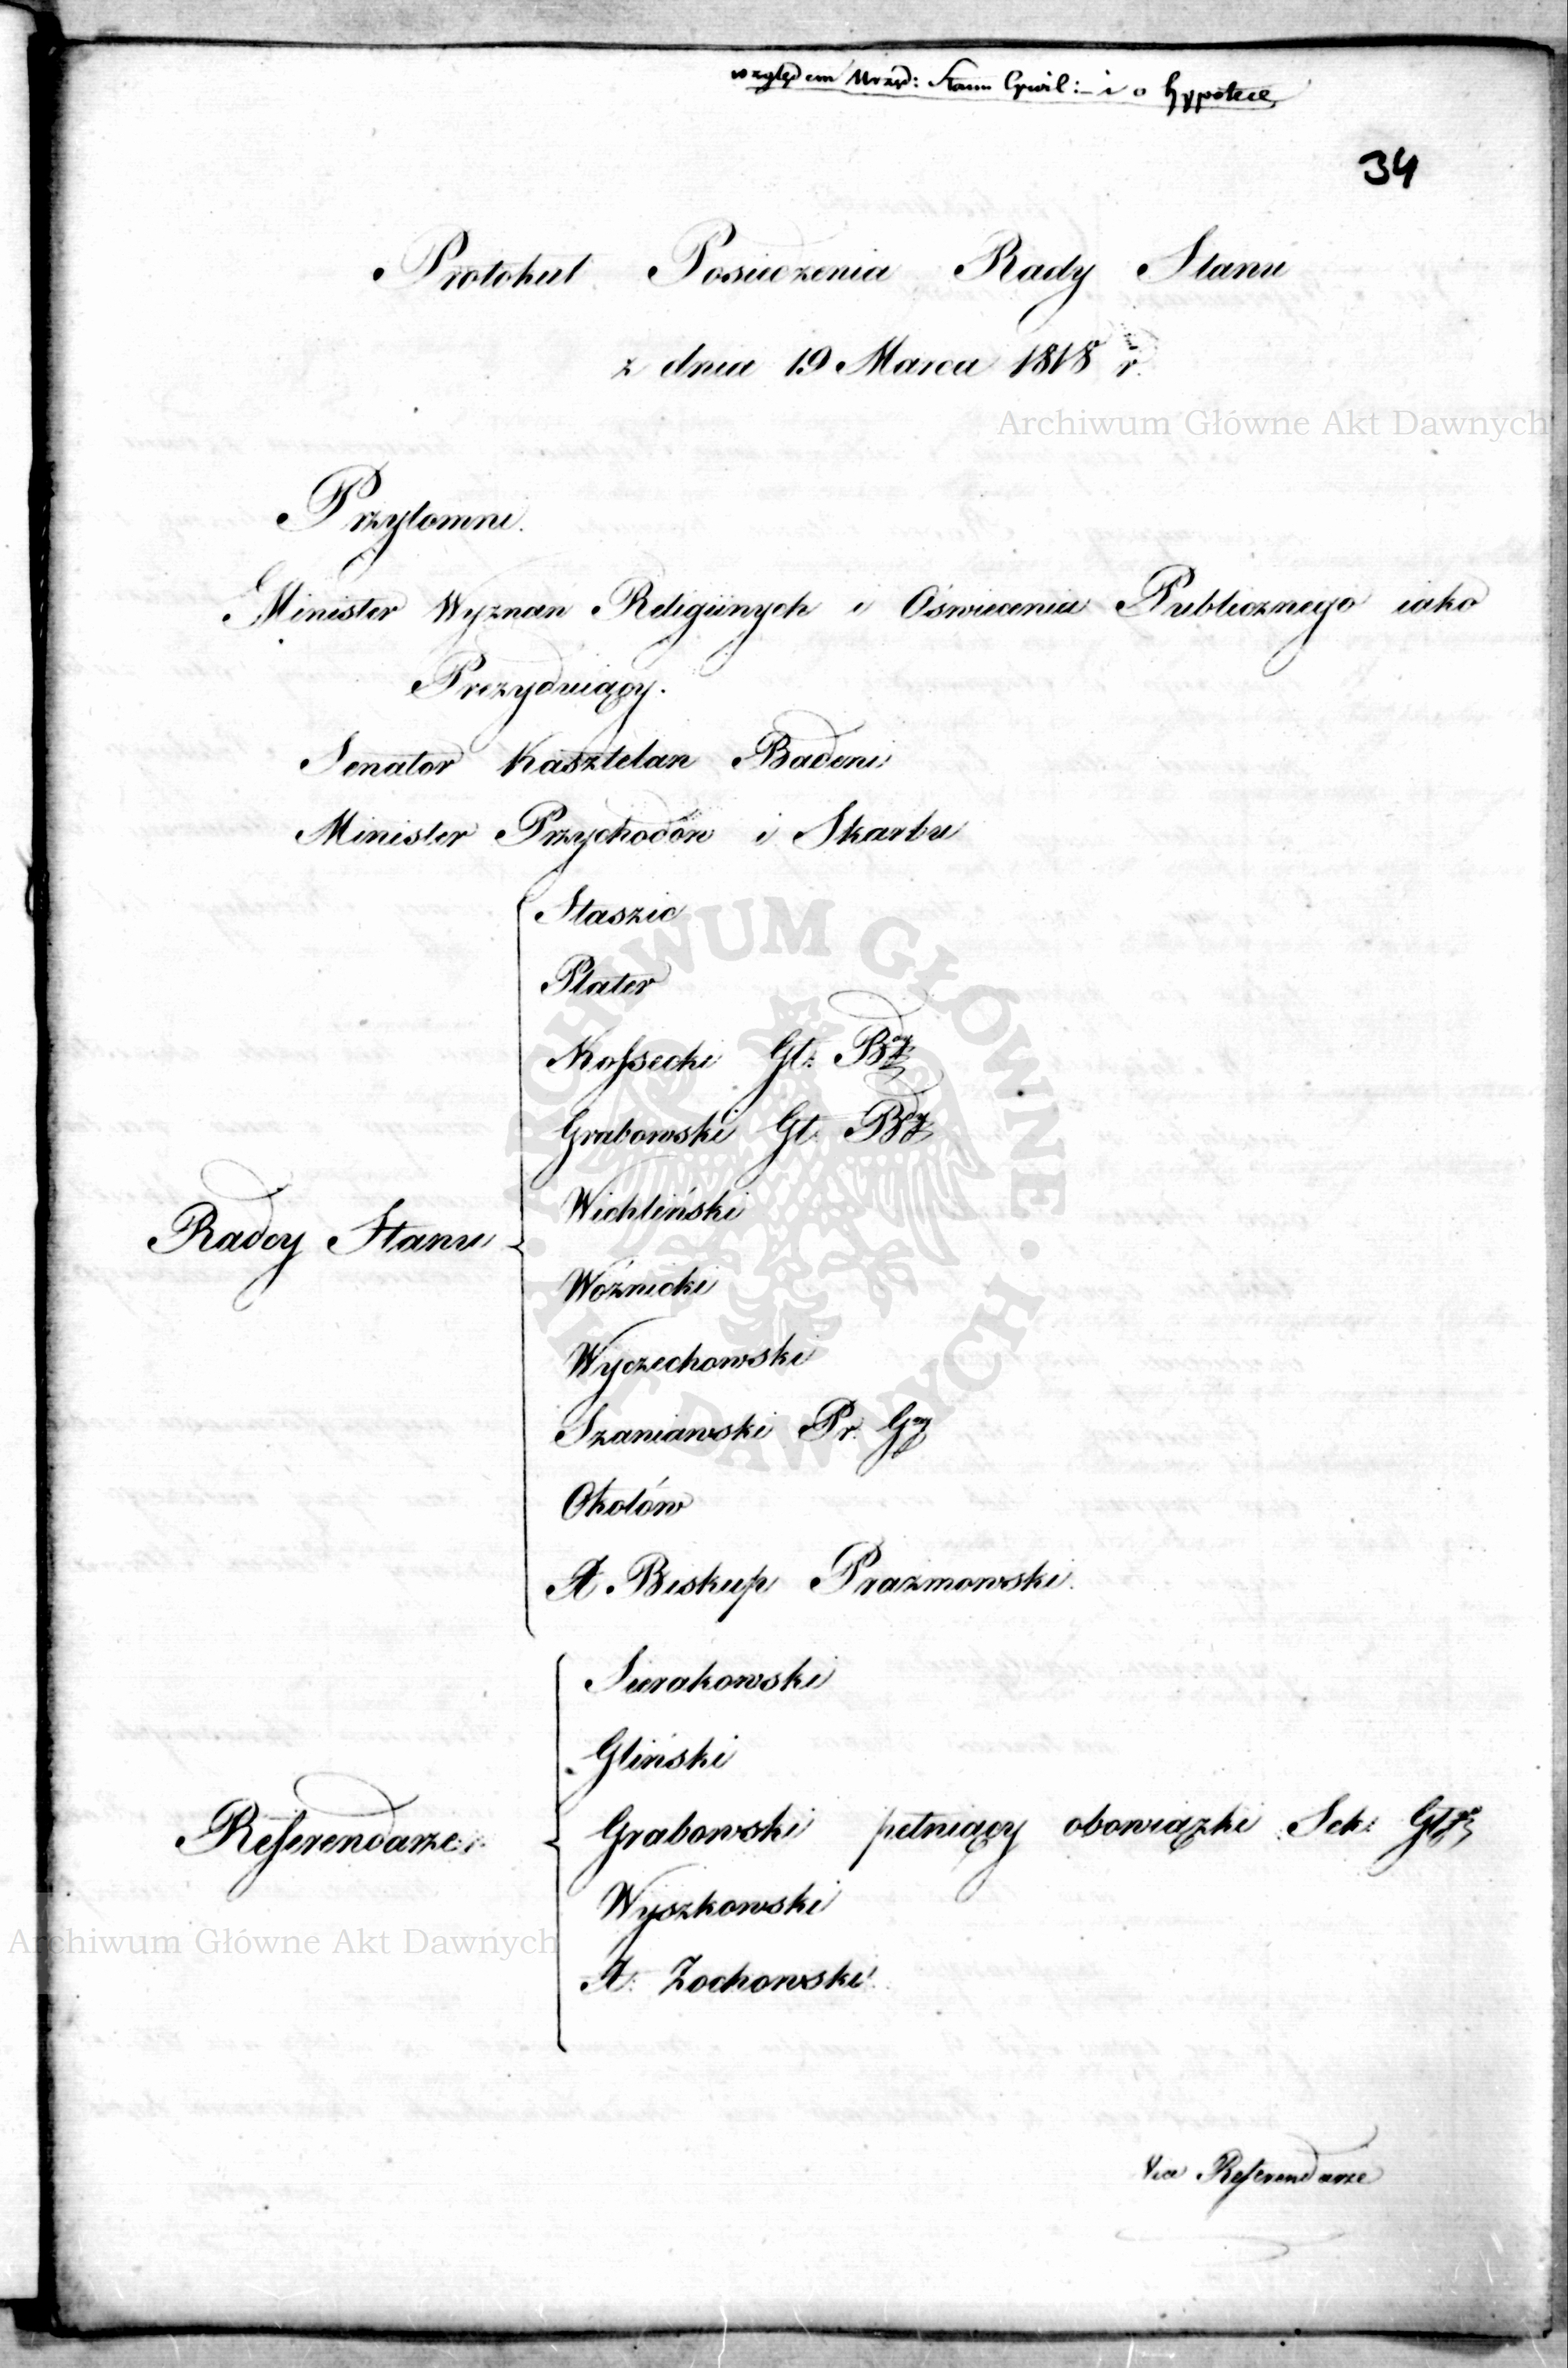 względem Urzęd: Stanu Cywil:– i o hypotece
34
Protokuł Posiedzenia Rady Stanu
z dnia 19 Marca 1818 r.
Archiwum Główne Akt Dawnych
Przytomni.
Minister Wyznań Religiinych i Oświecenia Publicznego iako
Prezyduiący.
Senator Kasztelan Badeni
Minister Przychodów i Skarbu
Radcy Stanu
Staszic
Plater
Kossecki Gł: Bdy
Grabowski Gł. Bdy
Wichliński
Woźnicki
Wyczechowski
Szaniawski Pr. Gny
Okołów
X Biskup Prażmowski.
Referendarze
Sierakowski
Gliński
Grabowski pełniący obowiązki Sek: Głgo
Wyszkowski
X. Żochowski.
Archiwum Główne Akt Dawnych
Vice Referendarze
ARCHIWUM GŁÓWNE · AKT DAWNYCH ·